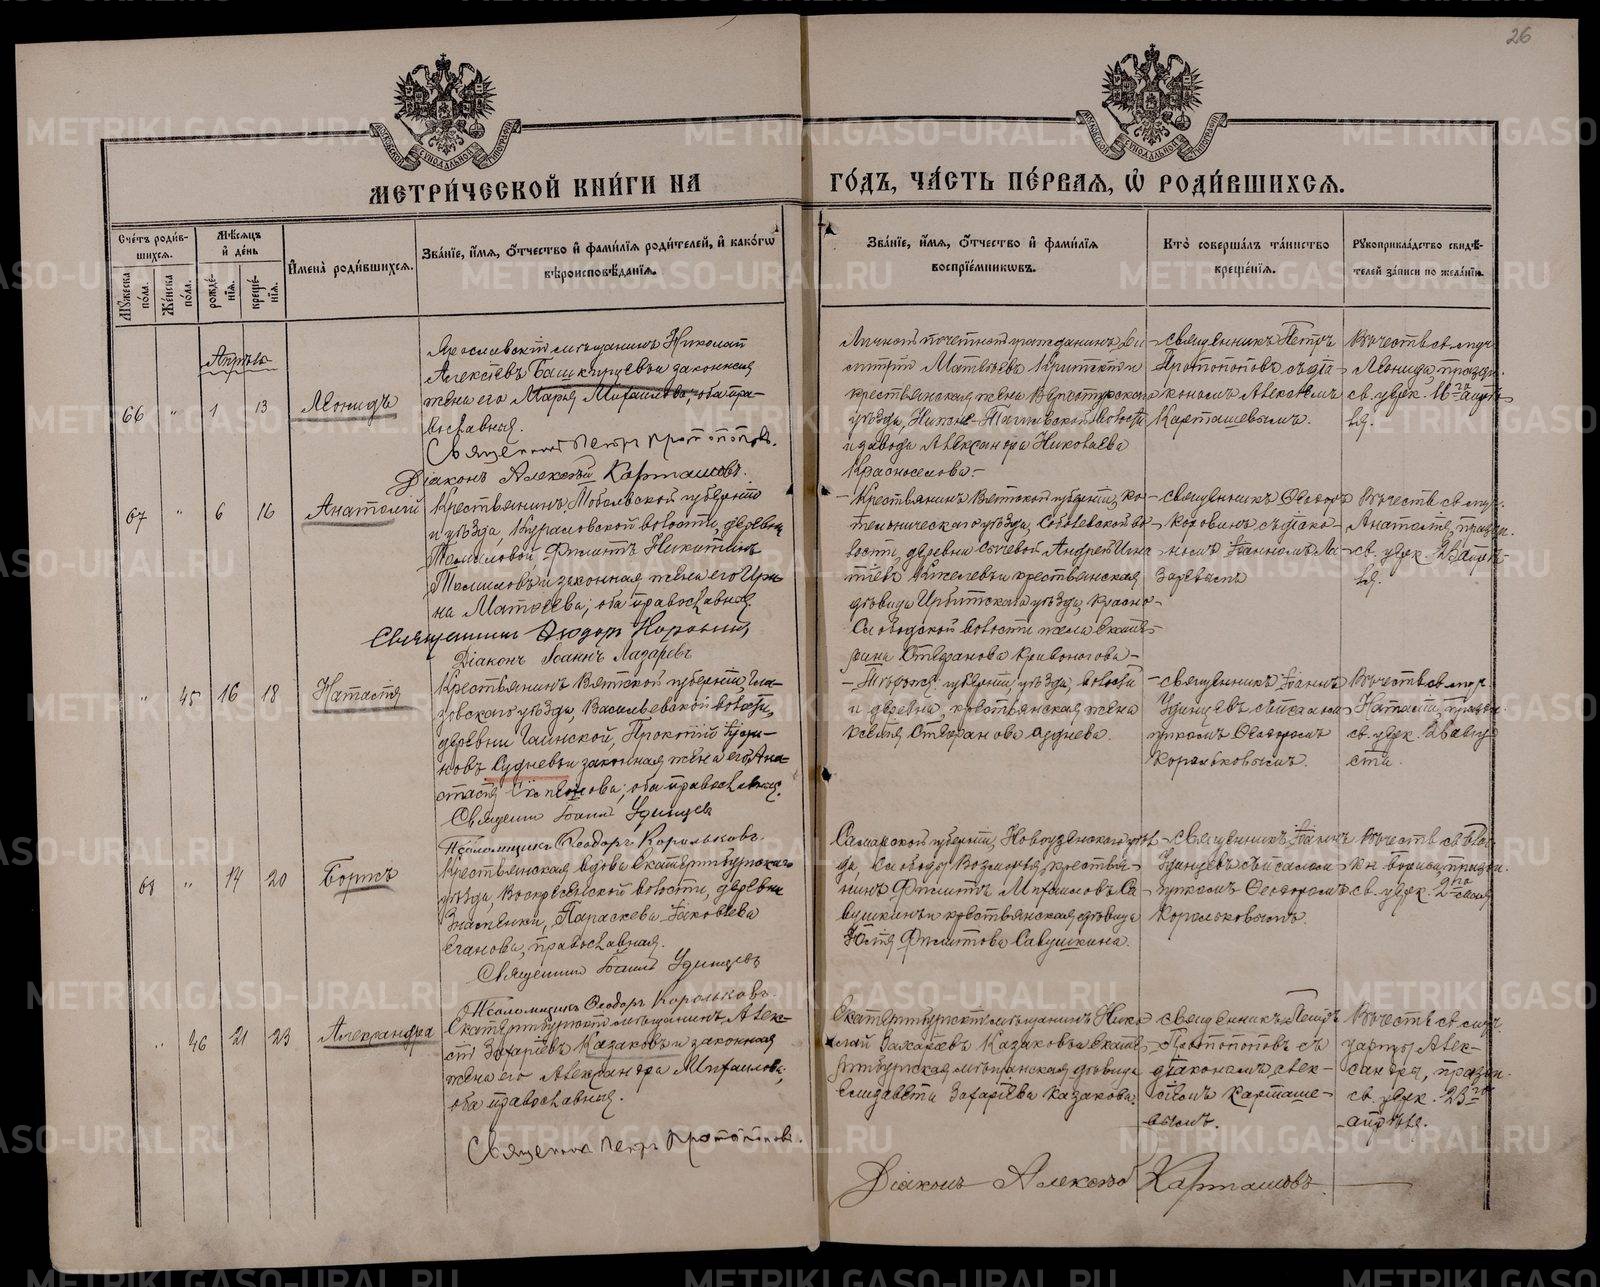 26
МЕТРИ́ЧЕСКОЙ КНИ́ГИ НА
ГО́ДЪ, ЧА́СТЬ ПЕ́РВАЯ, Ѡ҆ РОДИ́ВШИХСЯ.
Сче́тъ роди́вшихся.
Мѣ́сяцъ и҆ де́нь
Мꙋ́жеска по́ла.
Же́нска по́ла.
рожде́нїя.
креще́нїя.
И҆мена̀ роди́вшихся.
Зва́нїе, и҆́мя, ѻ҆́тчество и҆ фами́лїя роди́телей, и҆ како́гѡ
вѣроисповѣ́данїя.
Зва́нїе, и҆́мя, ѻ҆́тчество и҆ фами́лїя
воспрїе́мникѡвъ.
Кто̀ соверша́лъ та́инство
креще́нїя.
Рꙋкоприкла́дство свидѣ́-
телей за́писи по жела́нїю.
Апрѣль
66 " 1 13 Леонидъ
Ярославскій мѣщанинъ Николай
Алексѣевъ Башкирцевъ и законная
жена его Марья Михаилова, оба пра-
вославная.
Священникъ Петръ Протопоповъ.
Діаконъ Алексѣй Карташовъ.
Личной почетной гражданинъ Ди-
митрій Матвѣевъ
крестьянская жена Верхотурскаго
уѣзда, Нижне-Тагильской волости
и завода Александра Николаева
Красноселова-
Священникъ Петръ
Протопоповъ съ ді-
акономъ Алексѣемъ
Карташевымъ.
Въ честь св. муч.
Леонида, праздн.
св. церк. 16го апрѣ-
ля.
67 " 6 16 Анатолій
Крестьянинъ Тобольской губерніи
и уѣзда, волости, деревни
Томиловой, Филиппъ Никитинъ
Томиловъ и законная жена его Ири-
на Матѳеева; оба православная.
Священникъ Ѳеодоръ Коровинъ,
Діаконъ Іоаннъ Лазаревъ
- Крестьянинъ Вятской губерніи, Ко-
тельническаго уѣзда, Соболевской во-
лости, деревни Сычевой Андрей Игна-
тіевъ Киселевъ и крестьянская
дѣвица Ирбитскаго уѣзда, Красно-
Слободской волости и села Екате-
рина Стефанова Кривоногова-
- священникъ Ѳеодоръ
Коровинъ съ діако-
номъ Іоанномъ Ла-
заревымъ
Въ честь св. муч.
Анатолія, праздн.
св. церк. 23 апрѣ-
ля.
" 45 16 18 Наталія
Крестьянинъ Вятской губерніи, Гла-
зовскаго уѣзда, Васильевской волости,
деревни Гаинской, Прокопій
Судневъ и законная жена его Ана-
стасія оба православная.
Священникъ Іоаннъ Удинцевъ
Псаломщикъ Ѳеодоръ Корольковъ.
- Той же губерніи, уѣзда, волости
и деревни, крестьянская жена
Ксенія Стефанова
- священникъ Іоаннъ
Удинцевъ съ псалом-
щикомъ Ѳеодоромъ
Корольковымъ.
Въ честь св. мүч.
Наталіи, праздн.
св. церк. 26 авгу-
ста.
68 " 17 20 Борисъ
Крестьянская вдова Екатеринбурскаго
уѣзда, Воскресенской волости, деревни
Знаменки, Параскева Іаковлева
православная.
Священникъ Іоаннъ Удинцевъ
Псаломщикъ Ѳеодоръ Корольковъ.
Самарской губерніи, Новоузенскаго уѣз-
да, слободы крестья-
нинъ Филиппъ Михаиловъ Са-
вушкинъ и крестьянская дѣвица
Юлія Филиппова Савушкина.
- священникъ Іоаннъ
Удинцевъ съ псалом-
щикомъ Ѳеодоромъ
Корольковымъ.
Въ честь св. благ.
кн. Бориса, праздн.
св. церк. 2го мая
" 46 21 23 Александра
Екатеринбургскій мѣщанинъ Алек-
сѣй Захаріевъ Казаковъ и законная
жена его Александра Михаилова;
оба православная.
Священникъ Петръ Протопоповъ.
Екатеринбургскій мѣщанинъ Нико-
лай Захаріевъ Казаковъ и Екате-
ринбургская мѣщанская дѣвица
Елизавета Захаріева Казакова.
священникъ Петръ
Протопоповъ съ
діакономъ Алек-
сѣемъ Карташе-
вымъ.
Въ честь св. муч.
царицы Алек-
сандры, праздн.
св. церк. 23го
апрѣля.
Діаконъ Алексѣй Карташовъ.
METRIKI.GASO-URAL.RU